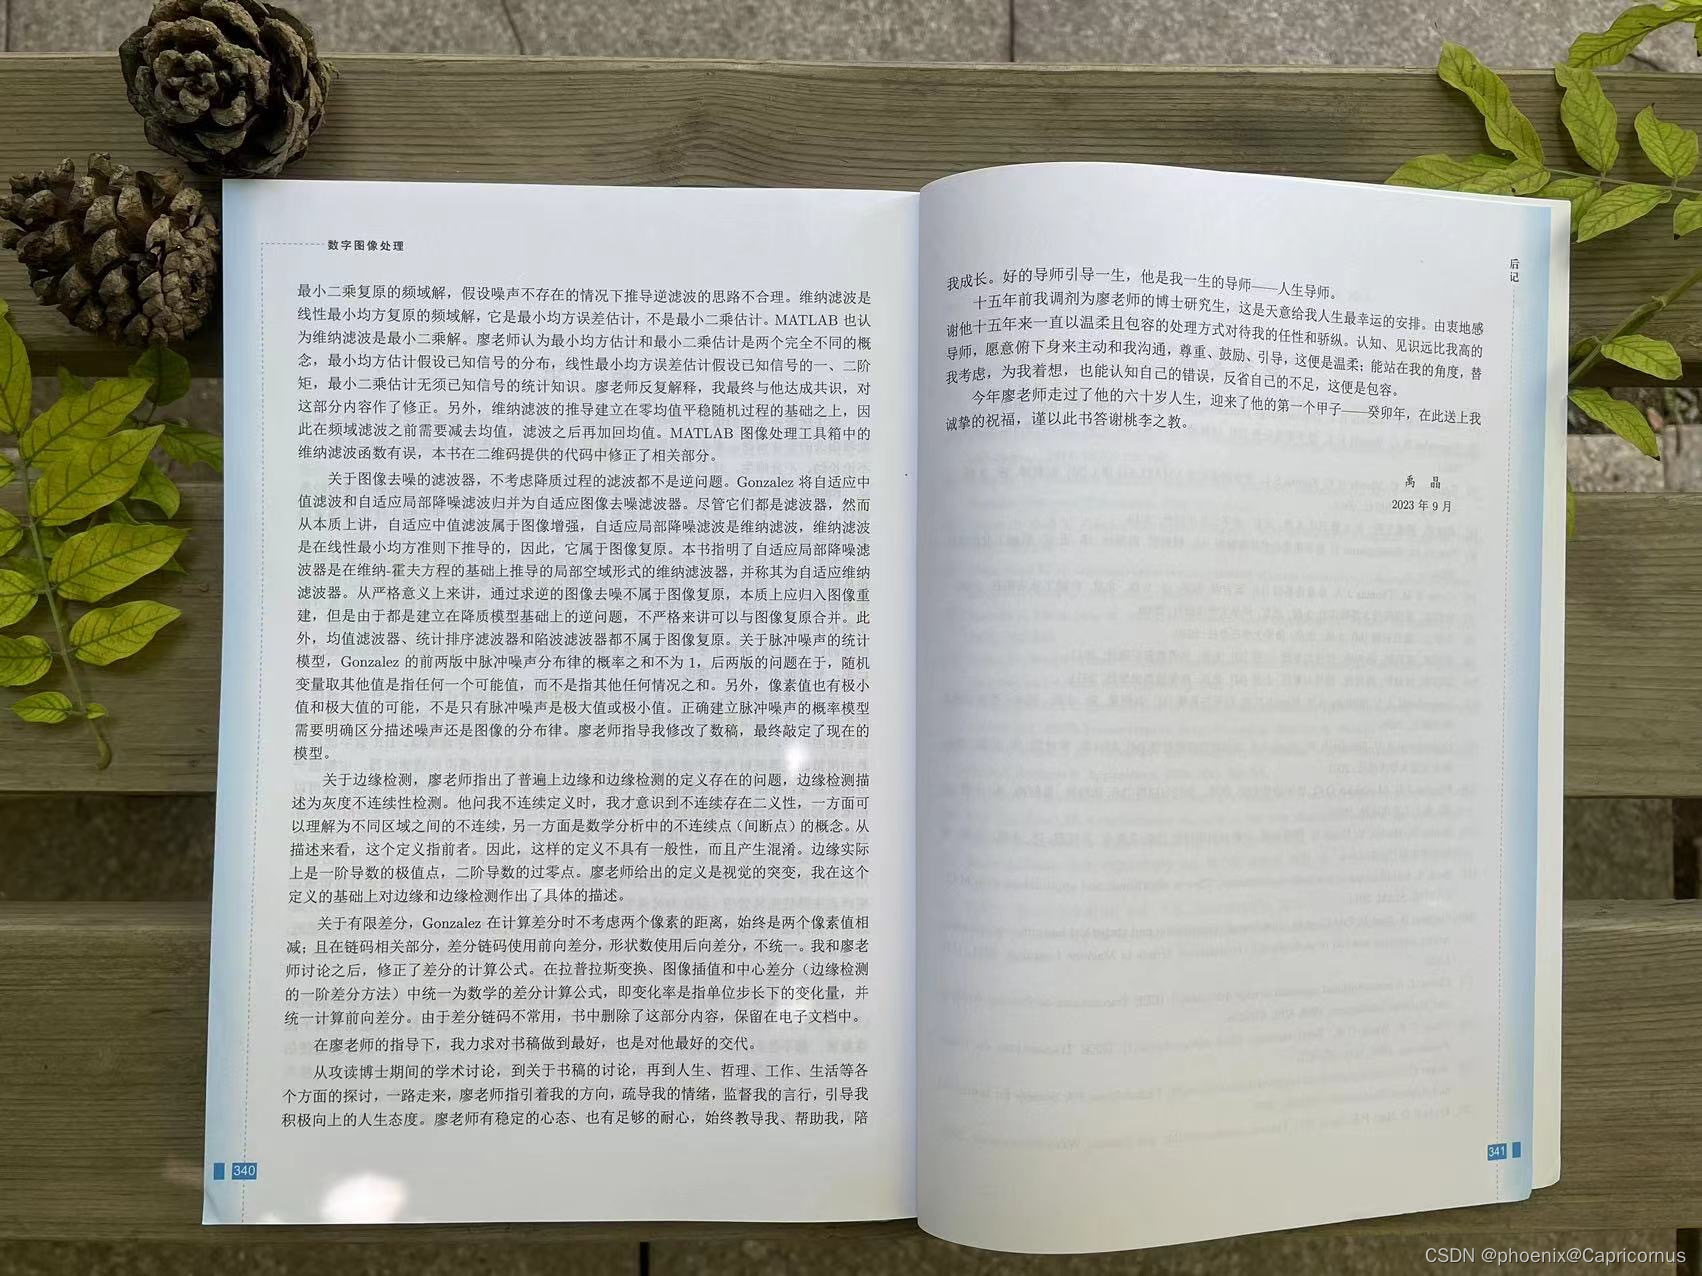 数字图像处理
最小二乘复原的频域解，假设噪声不存在的情况下推导逆滤波的思路不合理。维纳滤波是
线性最小均方复原的频域解，它是最小均方误差估计，不是最小二乘估计。MATLAB 也认
为维纳滤波是最小二乘解。廖老师认为最小均方估计和最小二乘估计是两个完全不同的概
念，最小均方估计假设已知信号的分布，线性最小均方误差估计假设已知信号的一、二阶
矩，最小二乘估计无须已知信号的统计知识。廖老师反复解释，我最终与他达成共识，对
这部分内容作了修正。另外，维纳滤波的推导建立在零均值平稳随机过程的基础之上，因
此在频域滤波之前需要减去均值，滤波之后再加回均值。MATLAB 图像处理工具箱中的
维纳滤波函数有误，本书在二维码提供的代码中修正了相关部分。
关于图像去噪的滤波器，不考虑降质过程的滤波都不是逆问题。Gonzalez 将自适应中
值滤波和自适应局部降噪滤波归并为自适应图像去噪滤波器。尽管它们都是滤波器，然而
从本质上讲，自适应中值滤波属于图像增强，自适应局部降噪滤波是维纳滤波，维纳滤波
是在线性最小均方准则下推导的，因此，它属于图像复原。本书指明了自适应局部降噪滤
波器是在维纳-霍夫方程的基础上推导的局部空域形式的维纳滤波器，并称其为自适应维纳
滤波器。从严格意义上来讲，通过求逆的图像去噪不属于图像复原，本质上应归入图像重
建，但是由于都是建立在降质模型基础上的逆问题，不严格来讲可以与图像复原合并。此
外，均值滤波器、统计排序滤波器和陷波滤波器都不属于图像复原。关于脉冲噪声的统计
模型，Gonzalez 的前两版中脉冲噪声分布律的概率之和不为 1，后两版的问题在于，随机
变量取其他值是指任何一个可能值，而不是指其他任何情况之和。另外，像素值也有极小
值和极大值的可能，不是只有脉冲噪声是极大值或极小值。正确建立脉冲噪声的概率模型
需要明确区分描述噪声还是图像的分布律。廖老师指导我修改了数稿，最终敲定了现在的
模型。
关于边缘检测，廖老师指出了普遍上边缘和边缘检测的定义存在的问题，边缘检测描
述为灰度不连续性检测。他问我不连续定义时，我才意识到不连续存在二义性，一方面可
以理解为不同区域之间的不连续，另一方面是数学分析中的不连续点（间断点）的概念。从
描述来看，这个定义指前者。因此，这样的定义不具有一般性，而且产生混淆。边缘实际
上是一阶导数的极值点，二阶导数的过零点。廖老师给出的定义是视觉的突变，我在这个
定义的基础上对边缘和边缘检测作出了具体的描述。
关于有限差分，Gonzalez 在计算差分时不考虑两个像素的距离，始终是两个像素值相
减；且在链码相关部分，差分链码使用前向差分，形状数使用后向差分，不统一。我和廖老
师讨论之后，修正了差分的计算公式。在拉普拉斯变换、图像插值和中心差分（边缘检测
的一阶差分方法）中统一为数学的差分计算公式，即变化率是指单位步长下的变化量，并
统一计算前向差分。由于差分链码不常用，书中删除了这部分内容，保留在电子文档中。
在廖老师的指导下，我力求对书稿做到最好，也是对他最好的交代。
从攻读博士期间的学术讨论，到关于书稿的讨论，再到人生、哲理、工作、生活等各
个方面的探讨，一路走来，廖老师指引着我的方向，疏导我的情绪，监督我的言行，引导我
积极向上的人生态度。廖老师有稳定的心态、也有足够的耐心，始终教导我、帮助我，陪
340
后记
我成长。好的导师引导一生，他是我一生的导师——人生导师。
十五年前我调剂为廖老师的博士研究生，这是天意给我人生最幸运的安排。由衷地感
谢他十五年来一直以温柔且包容的处理方式对待我的任性和骄纵。认知、见识远比我高的
导师，愿意俯下身来主动和我沟通，尊重、鼓励、引导，这便是温柔；能站在我的角度，替
我考虑，为我着想，也能认知自己的错误，反省自己的不足，这便是包容。
今年廖老师走过了他的六十岁人生，迎来了他的第一个甲子——癸卯年，在此送上我
诚挚的祝福，谨以此书答谢桃李之教。
禹 晶
2023 年 9 月
341
CSDN @phoenix@Capricornus